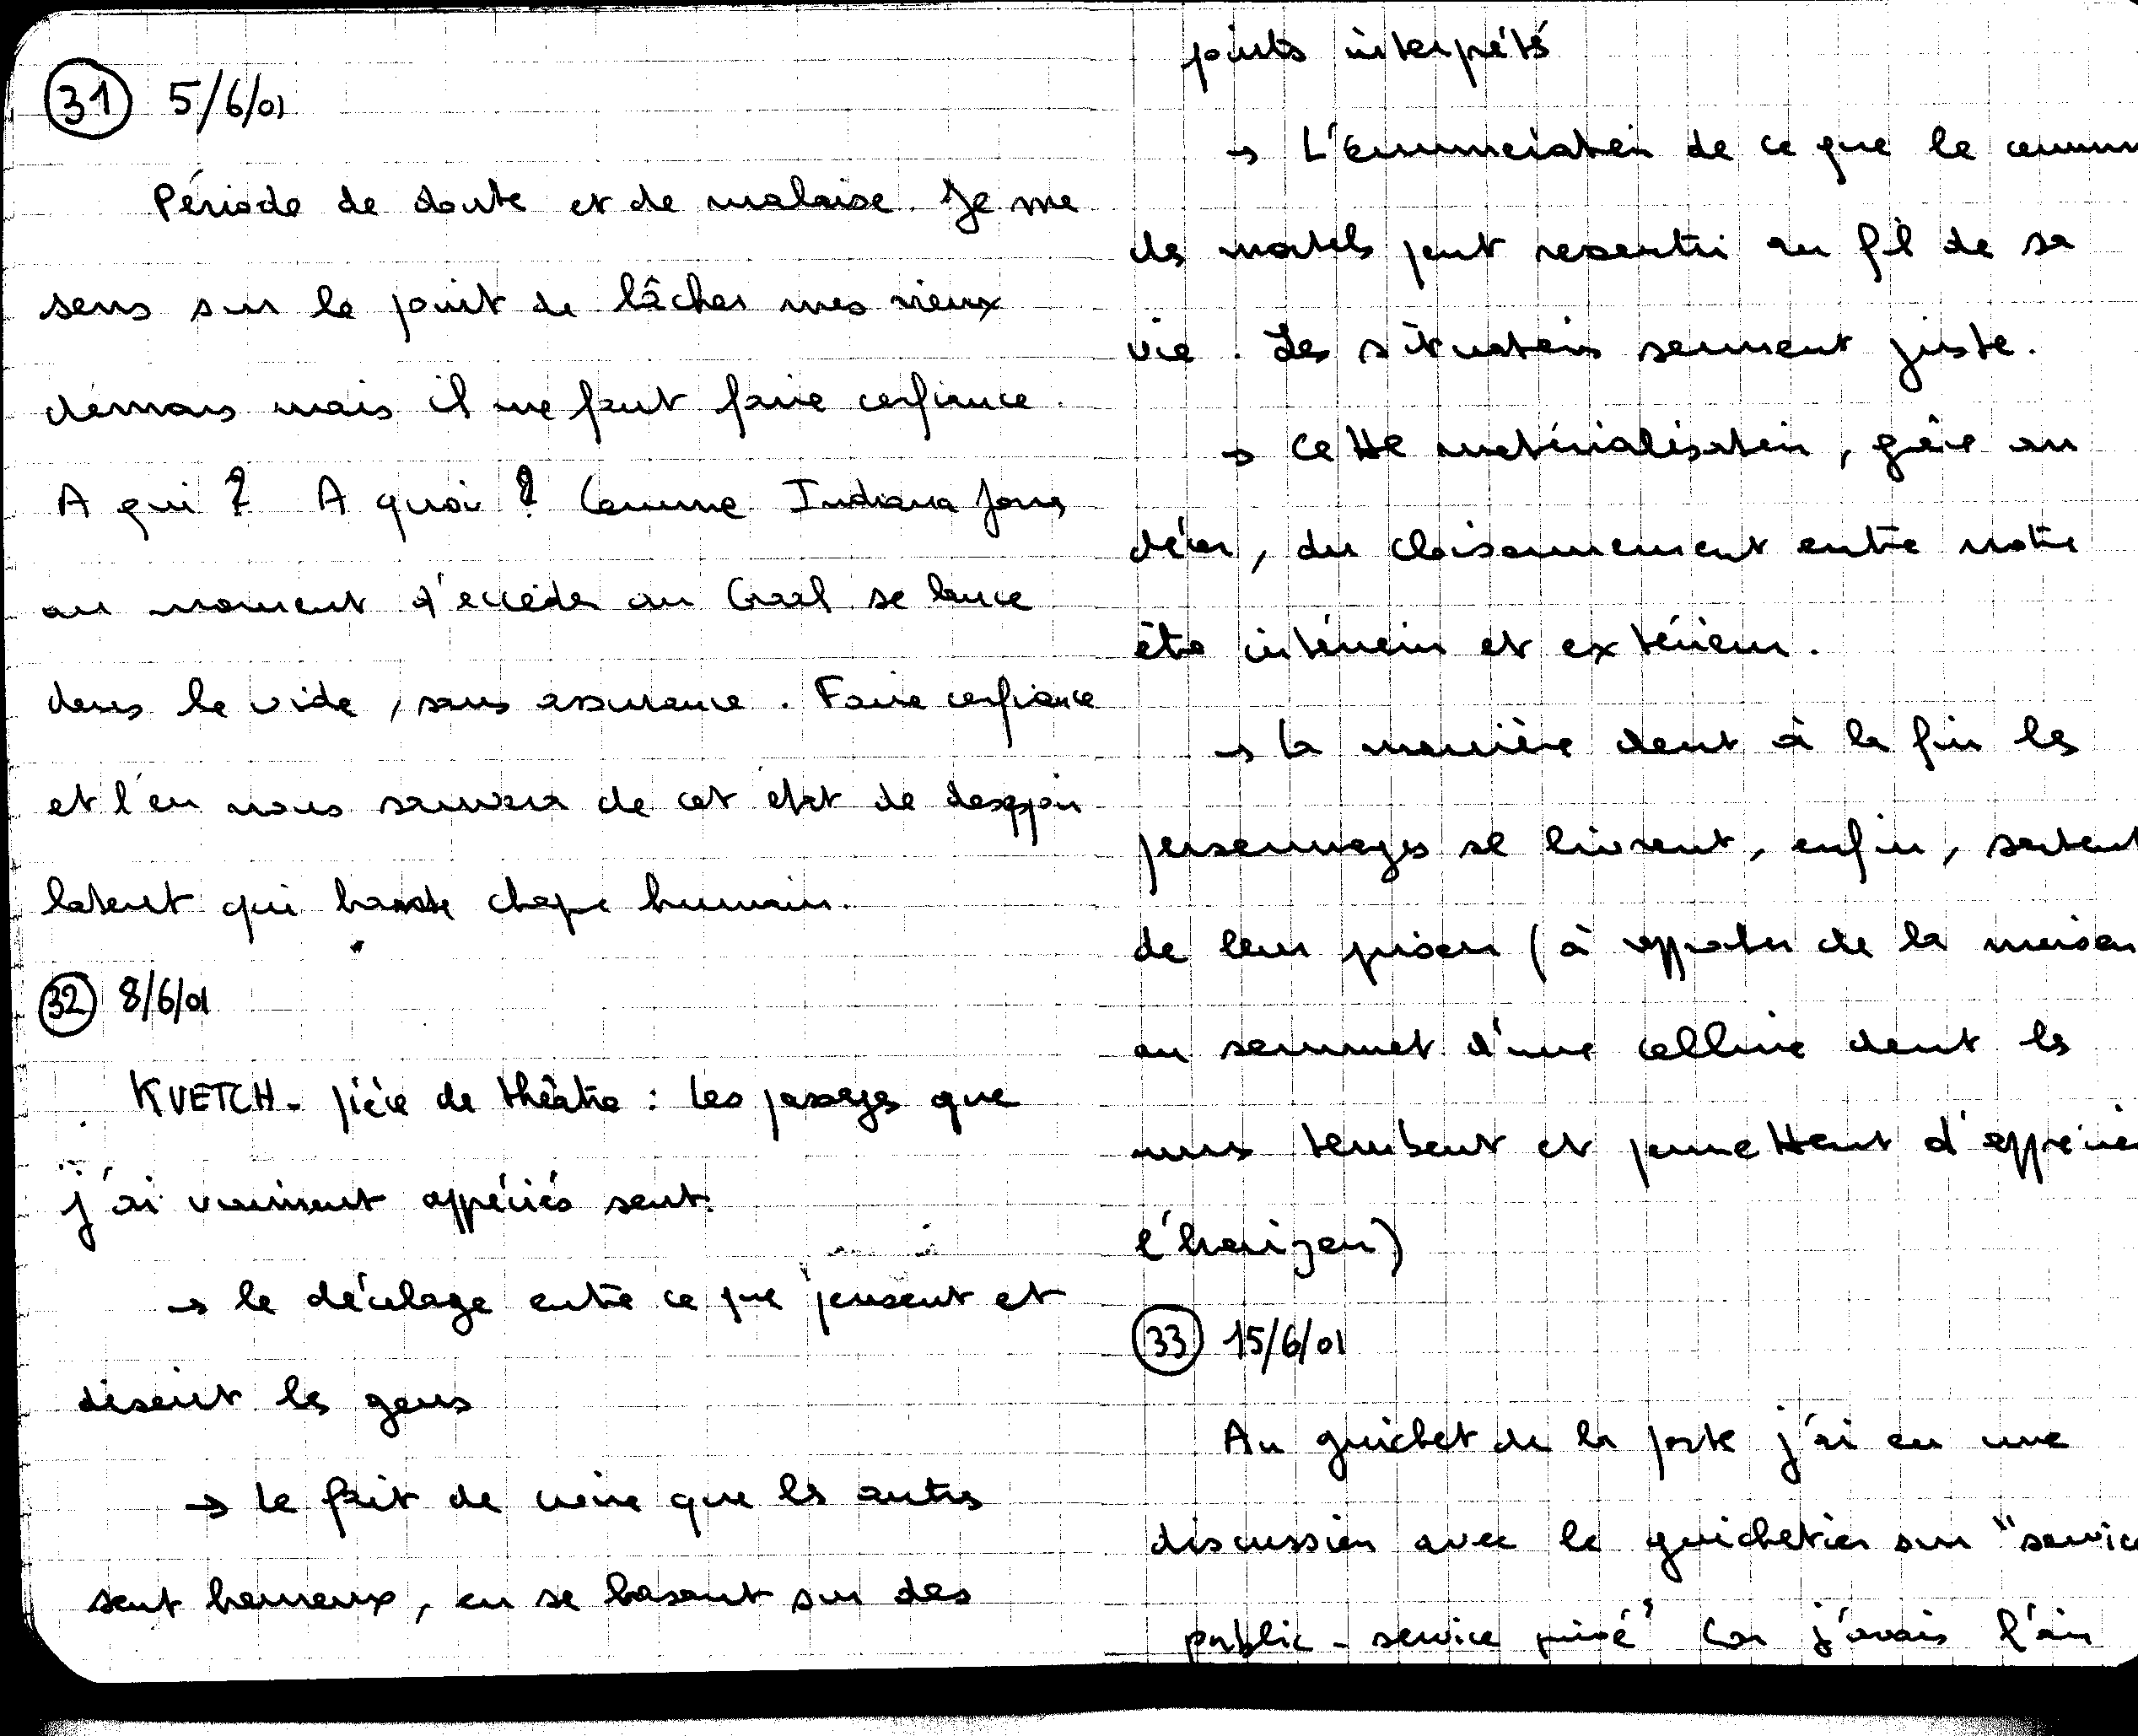 31 5/6/01
Période de doute et de malaise. Je me
sens sur le point de lâcher mes vieux
démons mais il me faut faire confiance.
A qui ? A quoi ? Comme Indiana Jones
au moment d'accéder au Graal se lance
dans le vide, sans assurance. Faire confiance
et l'on nous sauvera de cet état de desespoir
latent qui hante chaque humain.
32 8/6/01
KVETCH - pièce de théâtre : les passages que
j'ai vraiment appréciés sont:
→ le décalage entre ce que pensent et
disent les gens
→ Le fait de croire que les autres
sont heureux, en se basant sur des
points interprétés
→ L'énumération de ce que le commun
des mortels peut ressentir au fil de sa
vie. Les situations sonnent juste.
→ Cette matérialisation, grâce au
décor, du cloisonnement entre notre
être intérieur et extérieur.
→ La manière dont à la fin les
personnages se livrent, enfin, sortent
de leur prison (à rapprocher de la maison
au sommet d'une colline dont les
murs tombent et permettent d'apprécier
l'horizon)
33 15/6/01
Au guichet de la poste j'ai eu une
discussion avec le guichetier sur "service
public - service privé" Car j'avais l'air